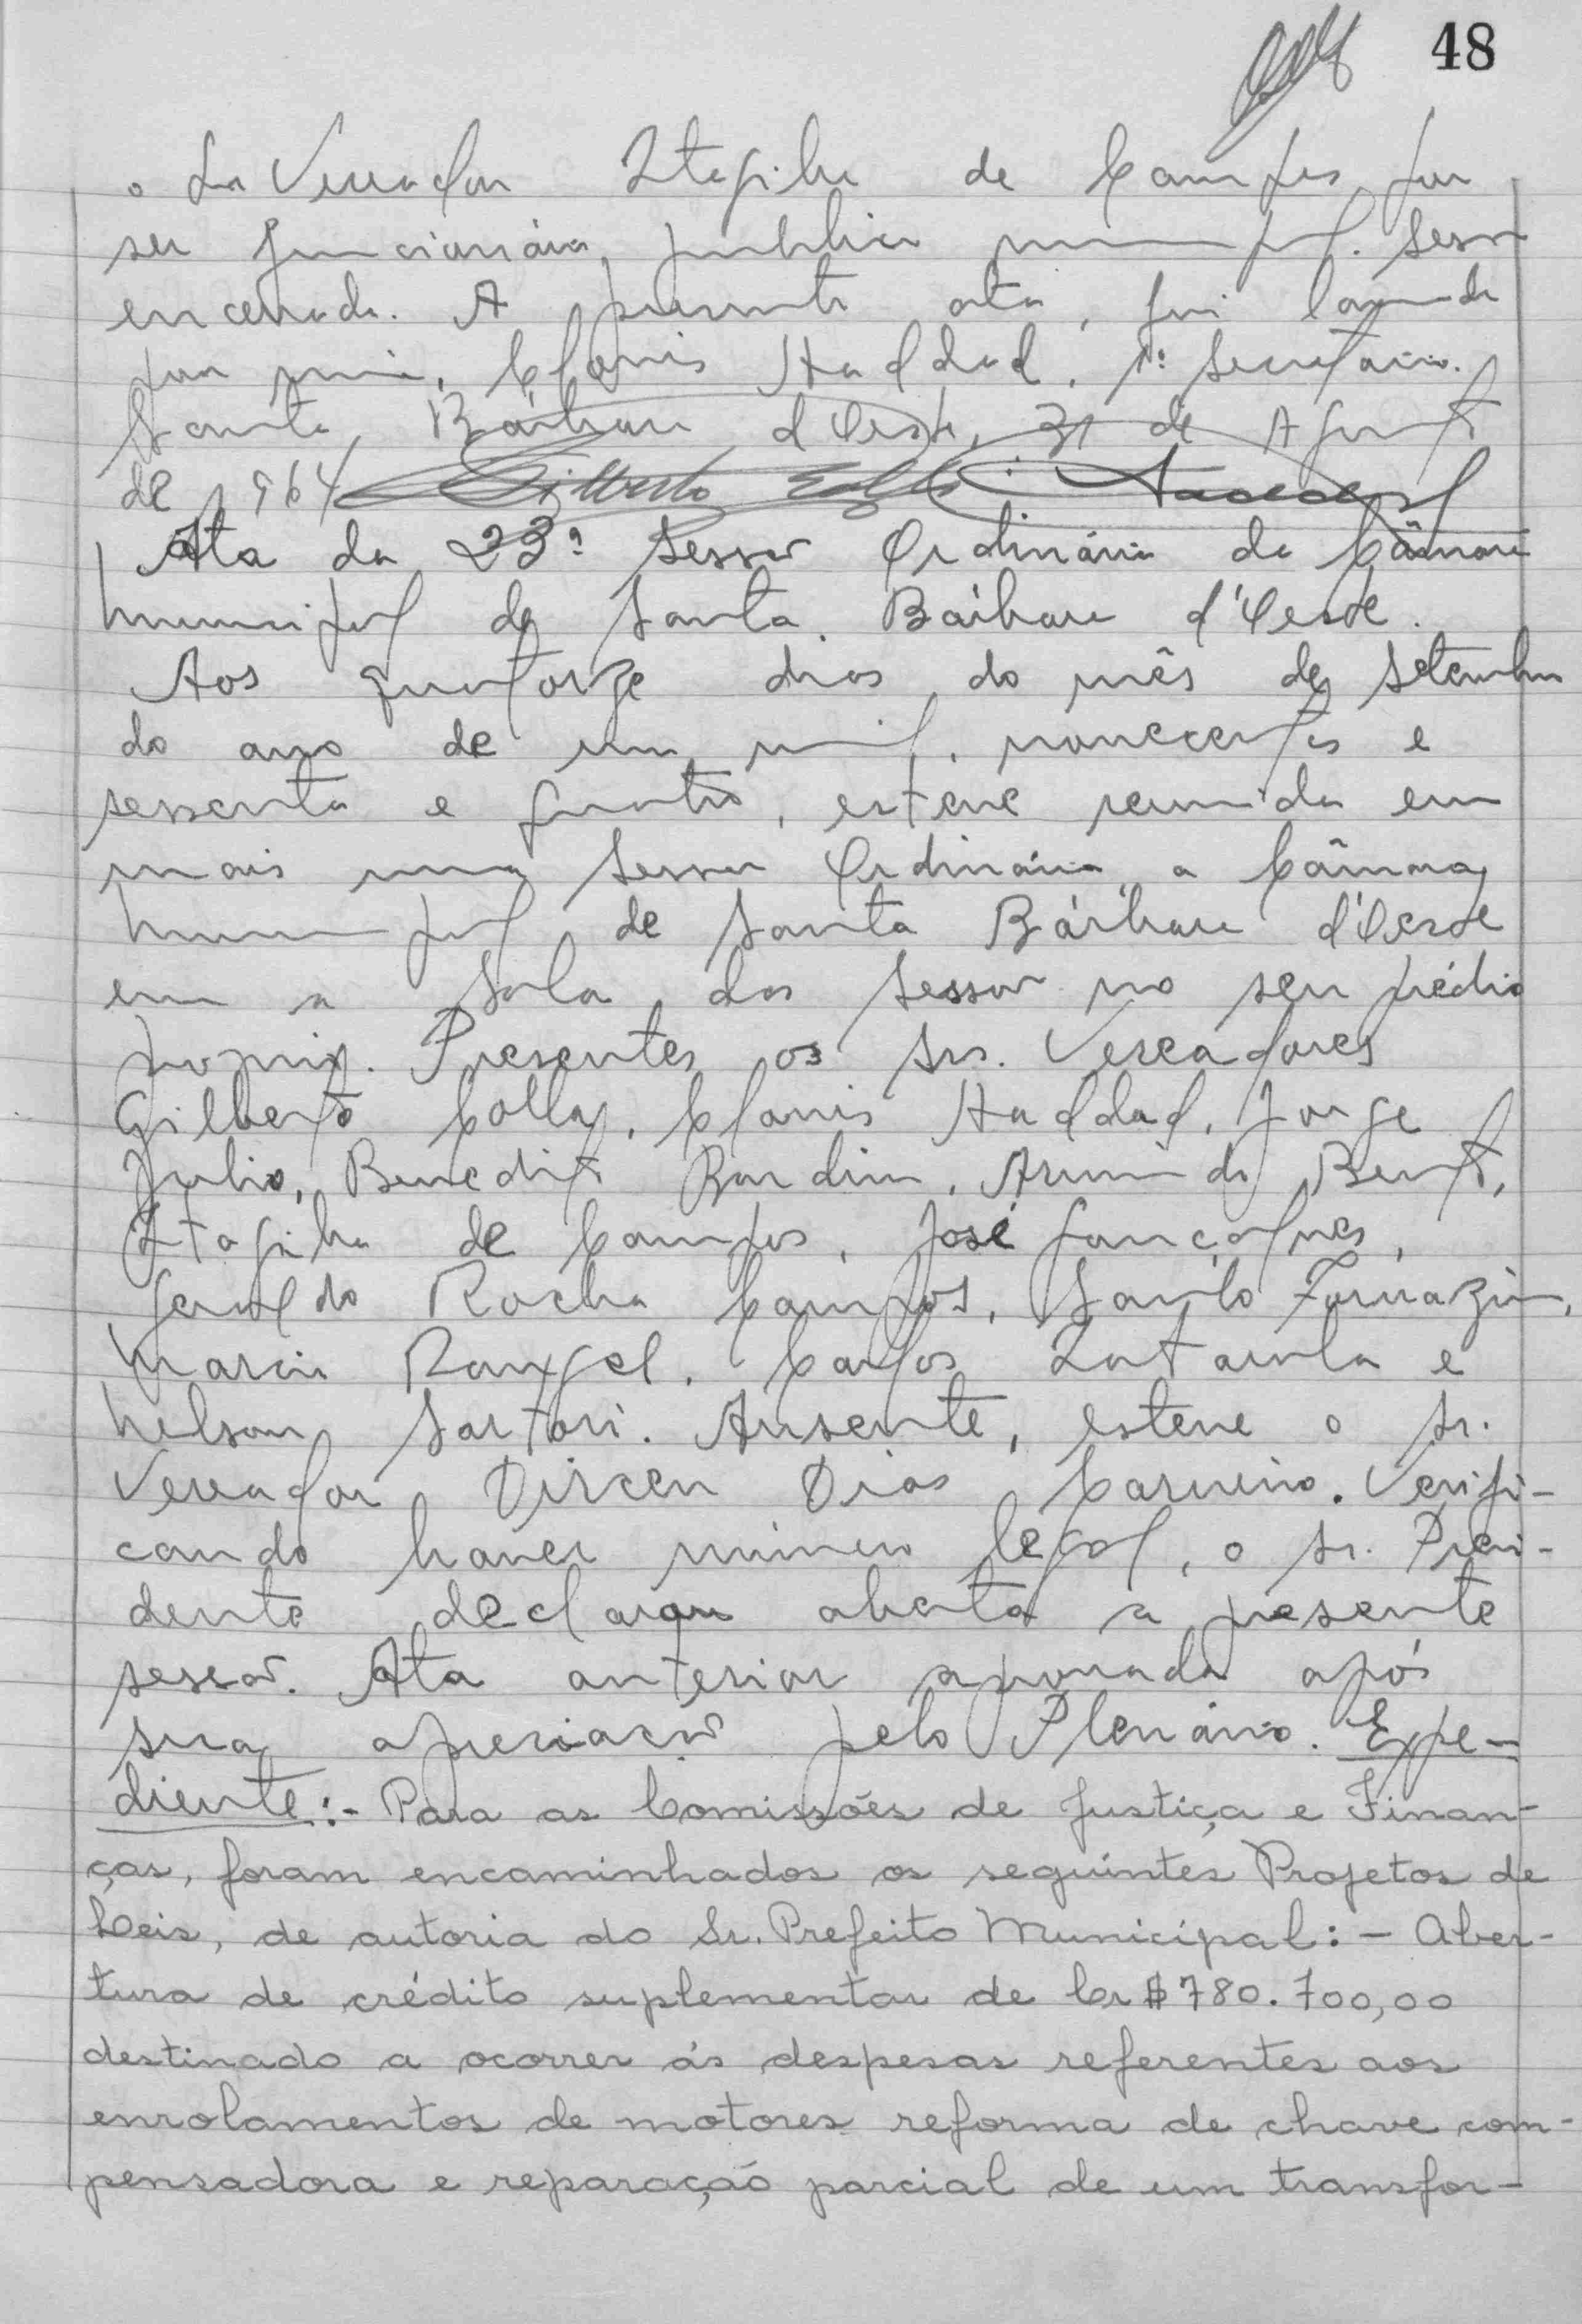 48
o Sr. Vereador Itagiba de Campos, por
ser funcionário publico municipal. Sessão
encerrada. A presente ata, foi lavrada
por mim, Clovis Haddad, 1º Secretario.
Santa Bárbara d'Oeste, 31 de Agosto
de 1964 Gilberto Colla Haddad
Ata da 23ª Sessão Ordinária da Câmara
Municipal de Santa Bárbara d'Oeste.
Aos quatorze dias do mês de Setembro
do ano de um mil, novecentos e
sessenta e quatro, esteve reunida em
mais uma Sessão Ordinária a Câmara
Municipal de Santa Bárbara d'Oeste
em a Sala das Sessão no seu prédio
proprio. Presentes os Srs. Vereadores
Gilberto Colla, Clovis Haddad, Jorge
Julio, Benedito Bardim, Armindo Bento,
Itagiba de Campos, José Gonçalves,
Geraldo Rocha Campos, Santo Fornazin,
Marcio Rangel, Carlos Zatarola e
Nelson Sartori. Ausente, esteve o Sr.
Vereador Dirceu Dias Carneiro. Verifi-
cando haver número legal, o Sr. Presi-
dente declarou aberta a presente
sessão. Ata anterior aprovada após
sua apreciação pelo Plenário. Expe-
diente:- Para as Comissões de Justiça e Finan-
ças, foram encaminhados os seguintes Projetos de
Leis, de autoria do Sr. Prefeito Municipal:- Aber-
tura de crédito suplementar de Cr$ 780.700,00
destinado a ocorrer ás despesas referentes aos
enrolamentos de motores reforma de chave com-
pensadora e reparação parcial de um transfor-